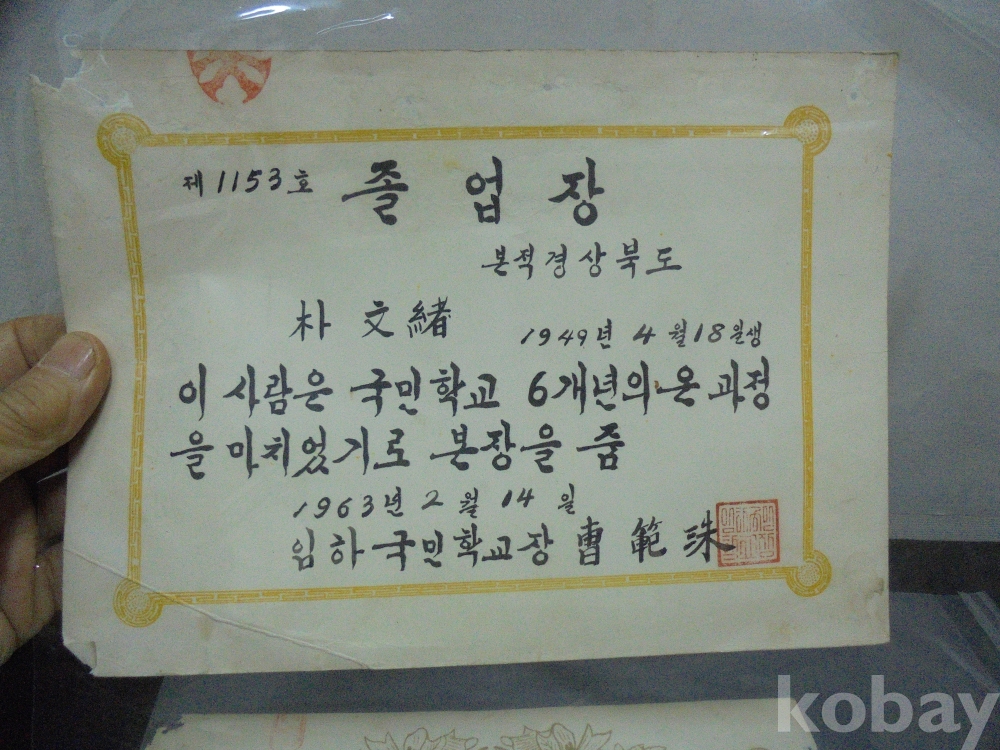 제 1153 호 졸 업 장
본적 경상북도
朴 文緖 1949년 4월 18일생
이 사람은 국민학교 6개년의 온 과정
을 마치었기로 본장을 줌
1963년 2월 14일
임하국민학교장 曺範珠
kobay